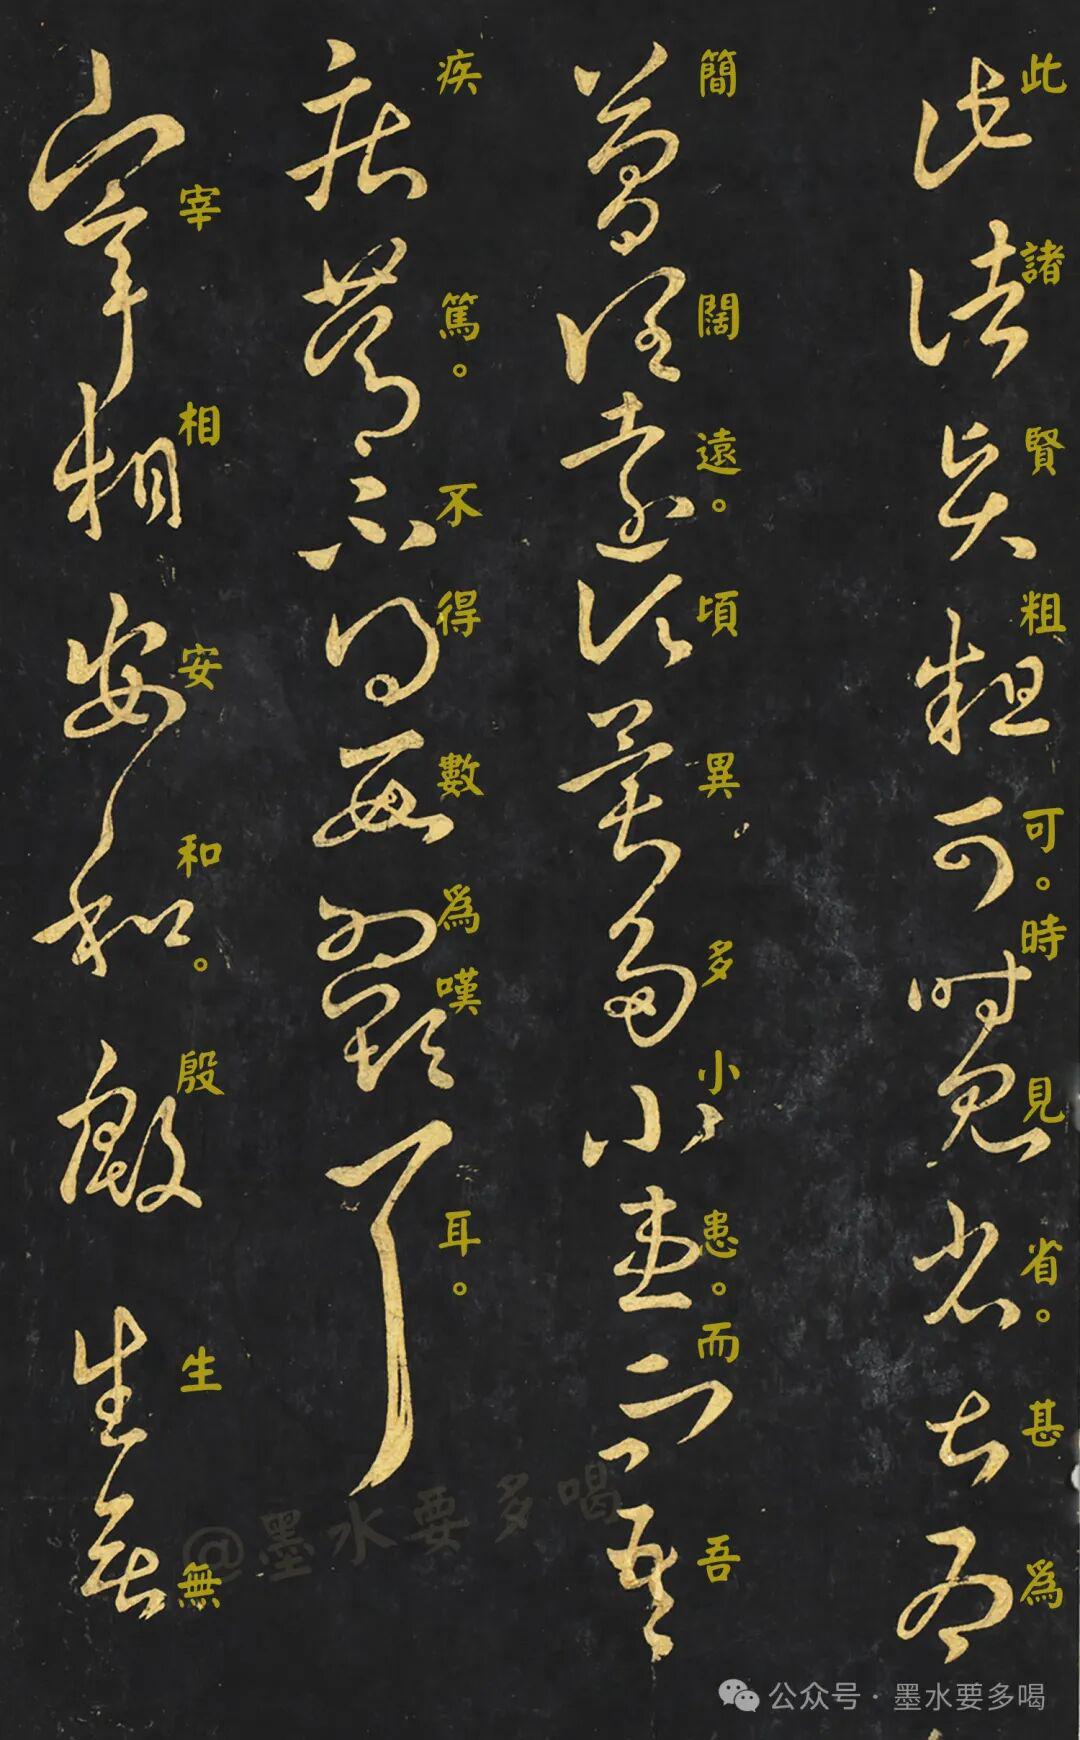 此諸賢粗可。時見省。甚為
簡闊遠。頃異多小患。而吾
疾篤。不得數為嘆耳。
宰相安和。殷生無
@墨水要多喝
公众号·墨水要多喝